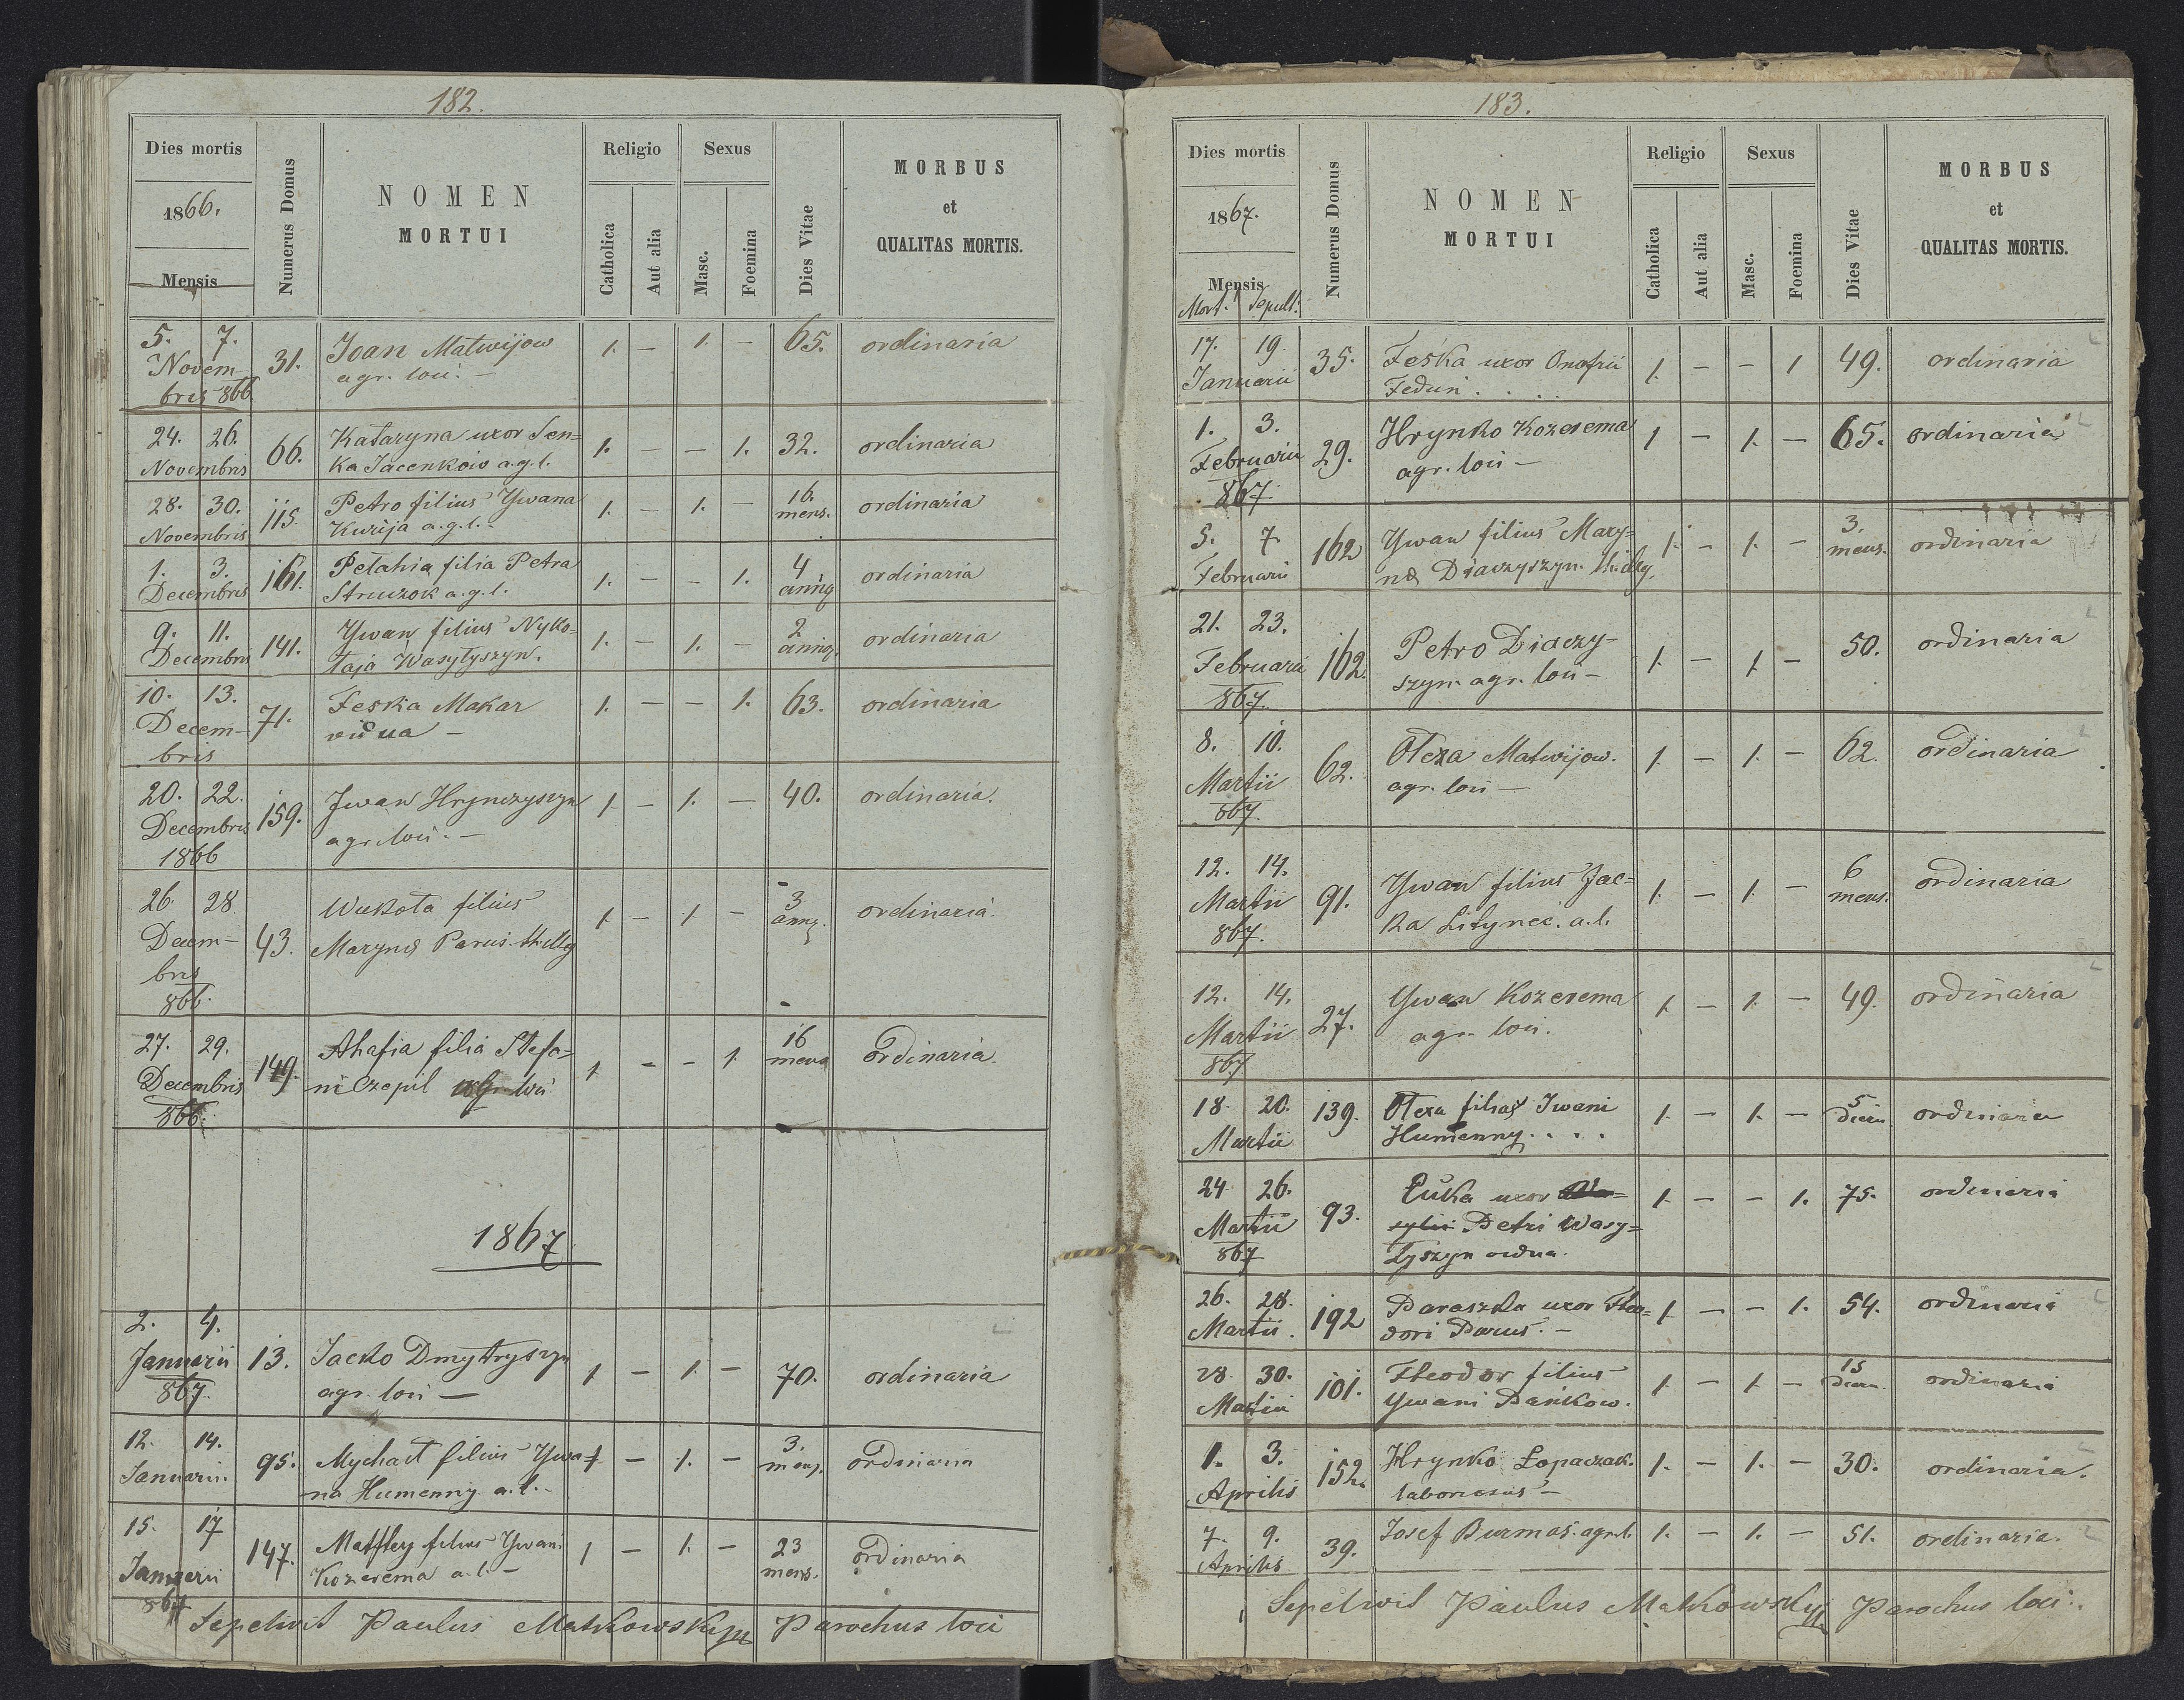 182.
Dies mortis
1866.
Mensis
Numerus Domus
NOMEN
MORTUI
Religio
Catholica
Aut alia
Sexus
Masc.
Foemina
Dies Vitae
MORBUS
et
QUALITAS MORTIS.
5. 7. 31. Joan Matwijow 1. — 1. — 65. ordinaria
Novem- agr. loci. —
bris 866
24. 26. 66. Kataryna uxor Sen= 1. — — 1. 32. ordinaria
Novembris ka Jacenkow a.g.l.
28. 30. 115. Petro filius Ywana 1. — 1. — 16. ordinaria
Novembris Kurija a.g.l. — mens.
1. 3. 161. Petahia filia Petra 1. — — 1. 4 ordinaria
Decembris Struczok a.g.l.
9. 11. 141. Ywan filius Nyko= 1. — 1. — 2 ordinaria
Decembris łaja Wasyłyszyn.
10. 13. 71. Feska Makar 1. — — 1. 63. ordinaria
Decem- vidua —
bris
20. 22. 159. Jwan Hrynczyszyn 1 — 1. — 40. ordinaria.
Decembris agr. loci. —
1866
26. 28 43. filius 1. — 1 — 3 ordinaria.
Decem- Maryna Parus
bris
866.
27. 29. 149. Ahafia filia Stefa= 1 — — 1. 16 ordinaria.
Decembris ni Czepil loci
866.
1867
2. 4. 13. Jacko Dmytryszyn 1 — 1. — 70. ordinaria
Januarii agr. loci —
867.
12. 14. 95. Mychał filius Ywa- 1 — 1. — 3. ordinaria
Januarii. na Humenny a.l. —
15. 17 147. Matftey filius Ywani 1 — 1. — 23 ordinaria
Januarii Kozerema a.l. — mens.
867
Sepelivit Paulus Matkowskyj Parochus loci
183.
Dies mortis
1867.
Mensis
Mort. Sepult.
Numerus Domus
NOMEN
MORTUI
Religio
Catholica
Aut alia
Sexus
Masc.
Foemina
Dies Vitae
MORBUS
et
QUALITAS MORTIS.
17. 19. 35. Feśka uxor Onofrii 1. — — 1 49. ordinaria
Januarii Fedun. . . .
1. 3. 29. Hrynko Kozerema 1 — 1. — 65. ordinaria
Februarii agr. loci —
867.
5. 7. 162 Ywan filius Mary= 1. — 1. — 3. ordinaria
Februarii Diaczyszyn mens.
21. 23. 162. Petro Diaczy- 1. — 1 — 50. ordinaria
Februarii szyn agr. loci —
867.
8. 10. 62. Ołexa Matwijow. 1. — 1. — 62. ordinaria
Martii agr. loci —
867.
12. 14. 91. Ywan filius Jac= 1. — 1. — 6 ordinaria
Martii ka Litynec. a.l. mens.
867.
12. 14. 27. Ywan Kozerema 1 — 1. — 49. ordinaria
Martii agr. loci.
867
18 20. 139. Ołexa filius Iwani 1. — 1. — 5 ordinaria
Martii Humenny. . . .
24 26. 93. uxor 1. — — 1. 75. ordinaria
Martii Petri Wasy=
867 łyszyn
26. 28. 192 Paraszka uxor Theo= 1 — — 1. 54. ordinaria
Martii. dori Parus. —
28. 30. 101. Fteodor filius 1. — 1 — 15 ordinaria
Martii Ywani Pańkow.
1. 3. 152. Hrynko Łopaczak. 1. — 1. — 30. ordinaria.
Aprilis laboriosus —
7. 9. 39. Josef Burmas. agr.l. 1. — 1. — 51. ordinaria.
Aprilis
Sepelivit Paulus Matkowskyj Parochus loci.